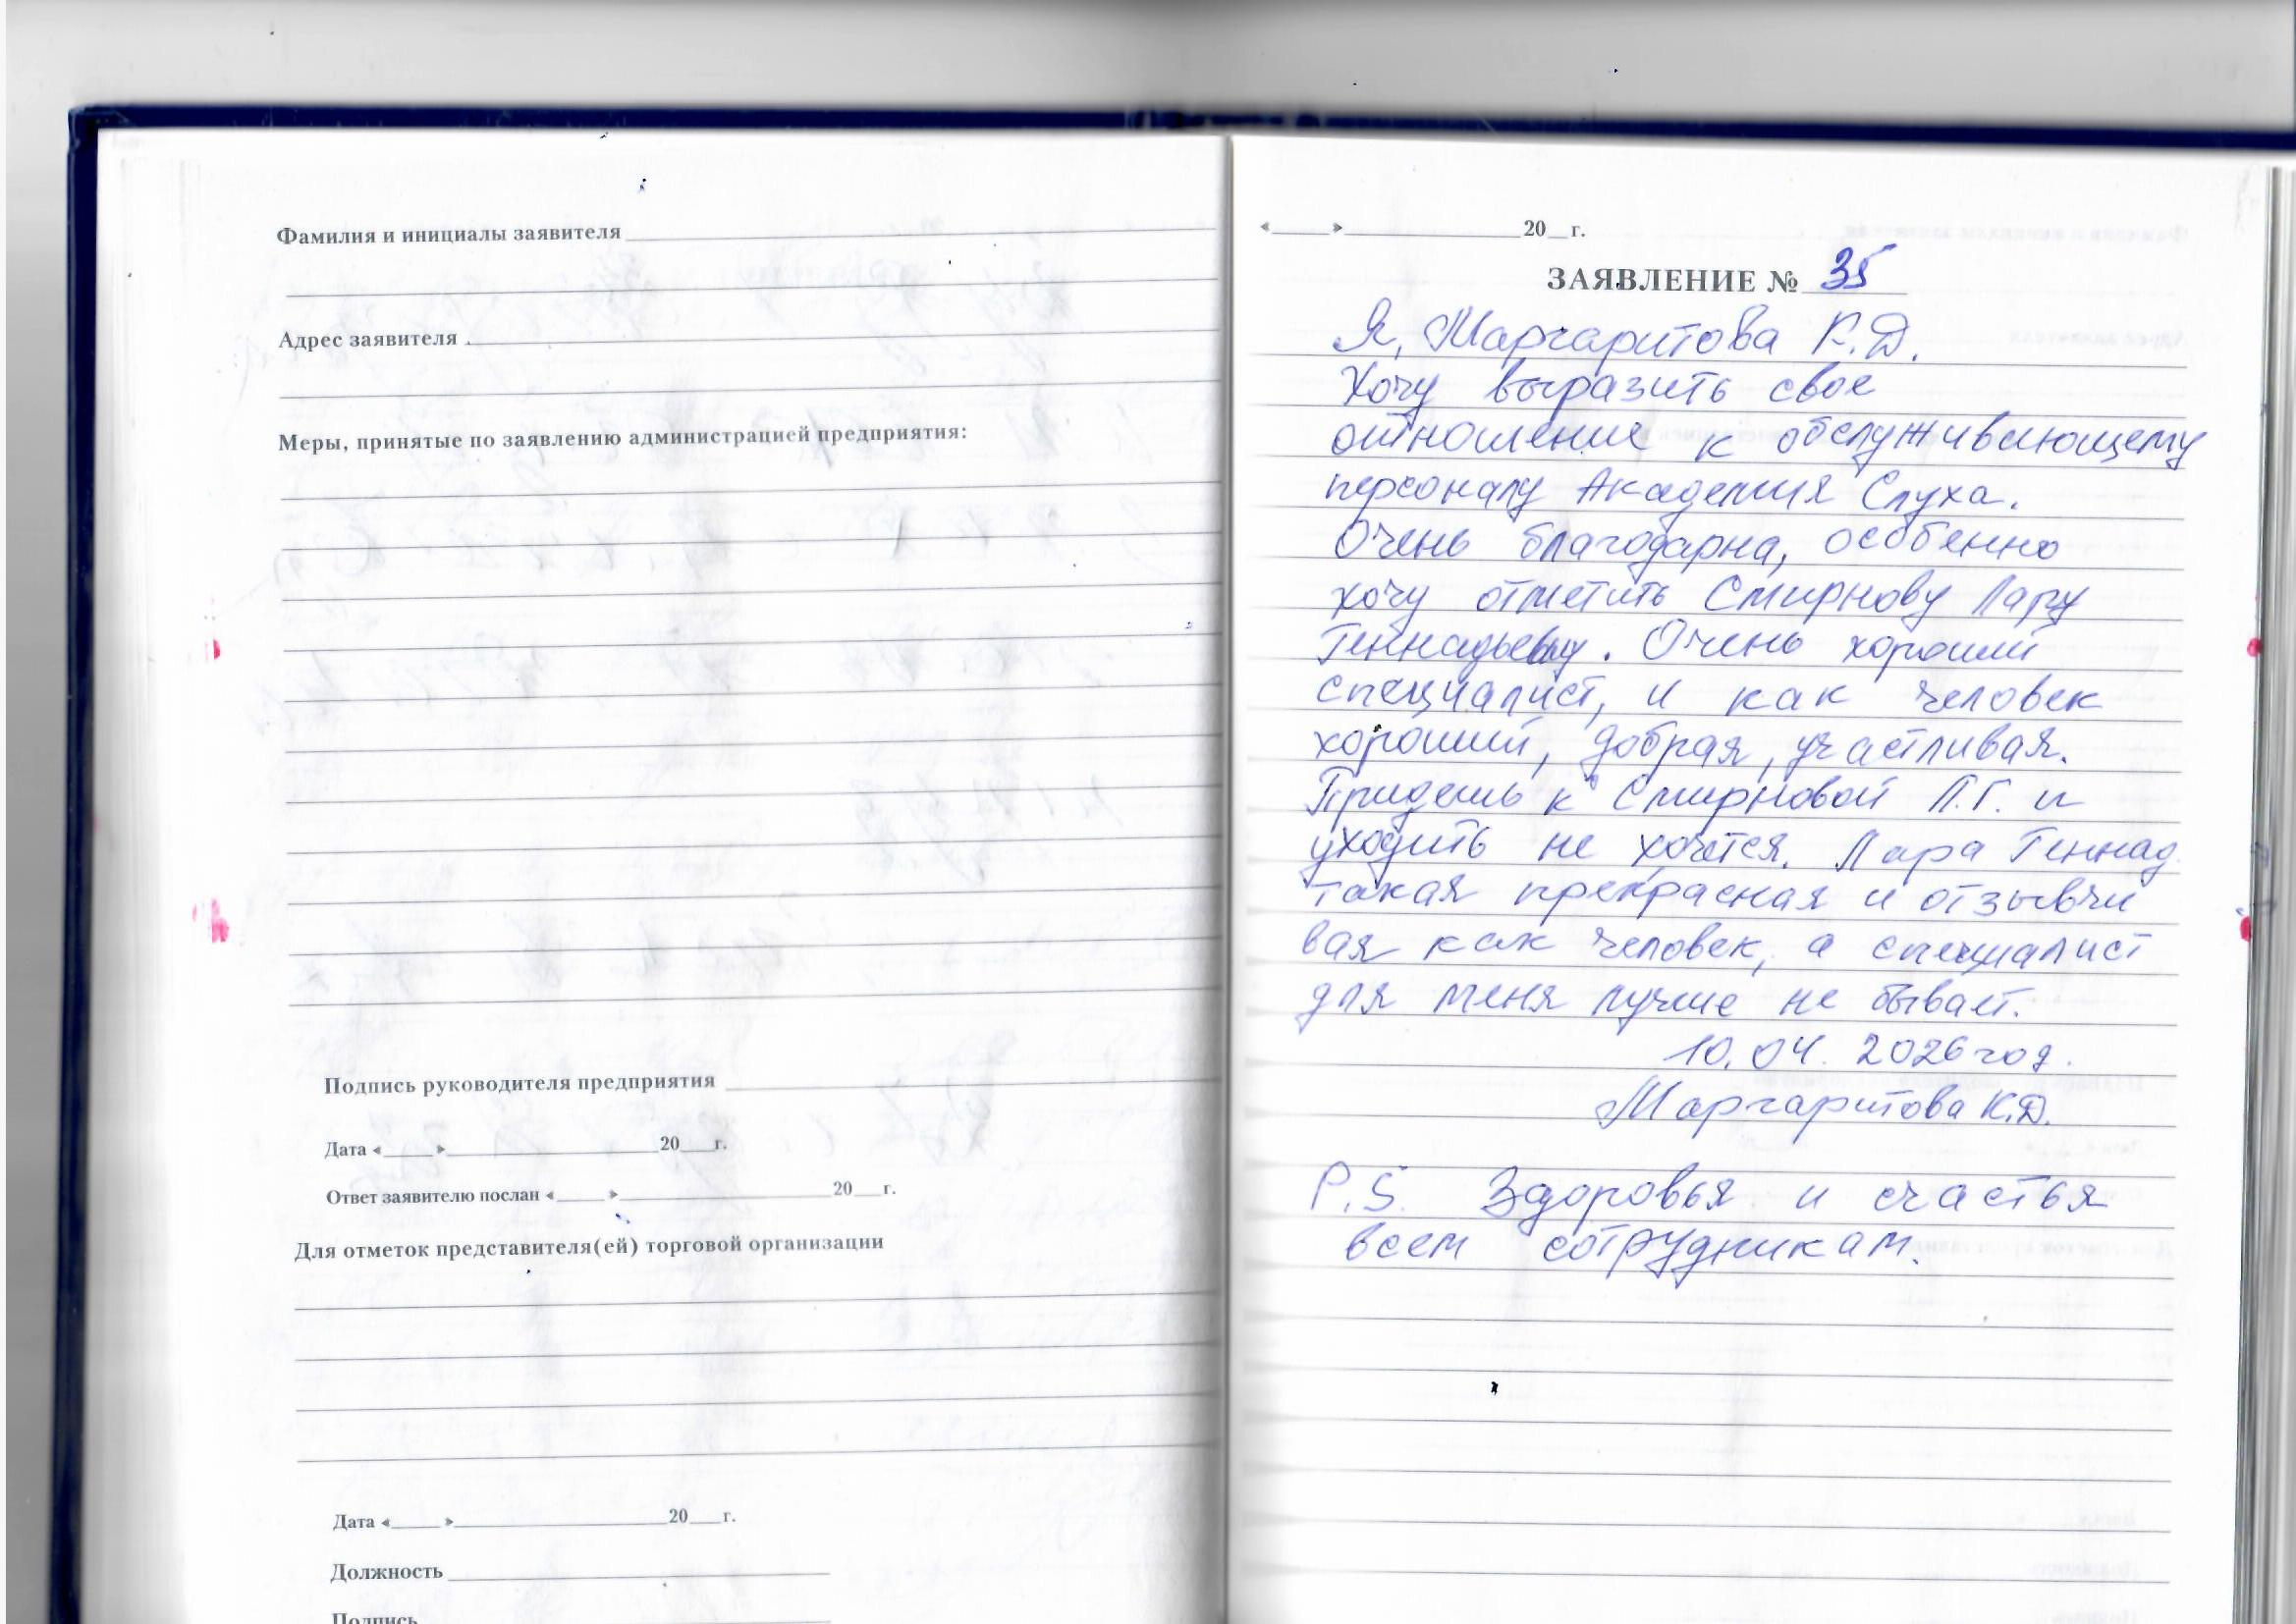 Фамилия и инициалы заявителя
Адрес заявителя
Меры, принятые по заявлению администрацией предприятия:
Подпись руководителя предприятия
Дата «____» ____ 20__г.
Ответ заявителю послан «____» ____ 20__г.
Для отметок представителя(ей) торговой организации
Дата «____» ____ 20__г.
Должность
Подпись
«____» ____ 20__г.
ЗАЯВЛЕНИЕ № 35
Я, Маргаритова К.Д.
Хочу выразить свое
отношение к обслуживающему
персоналу Академия Слуха.
Очень благодарна, особенно
хочу отметить Смирнову Лару
Геннадьевну. Очень хороший
специалист, и как человек
хороший, добрая, участливая.
Придешь к Смирновой Л.Г. и
уходить не хочется. Лара Геннад.
такая прекрасная и отзывчи
вая как человек, а специалист
для меня лучше не бывает.
10.04. 2026 год.
Маргаритова К.Д.
P.S. Здоровья и счастья
всем сотрудникам.